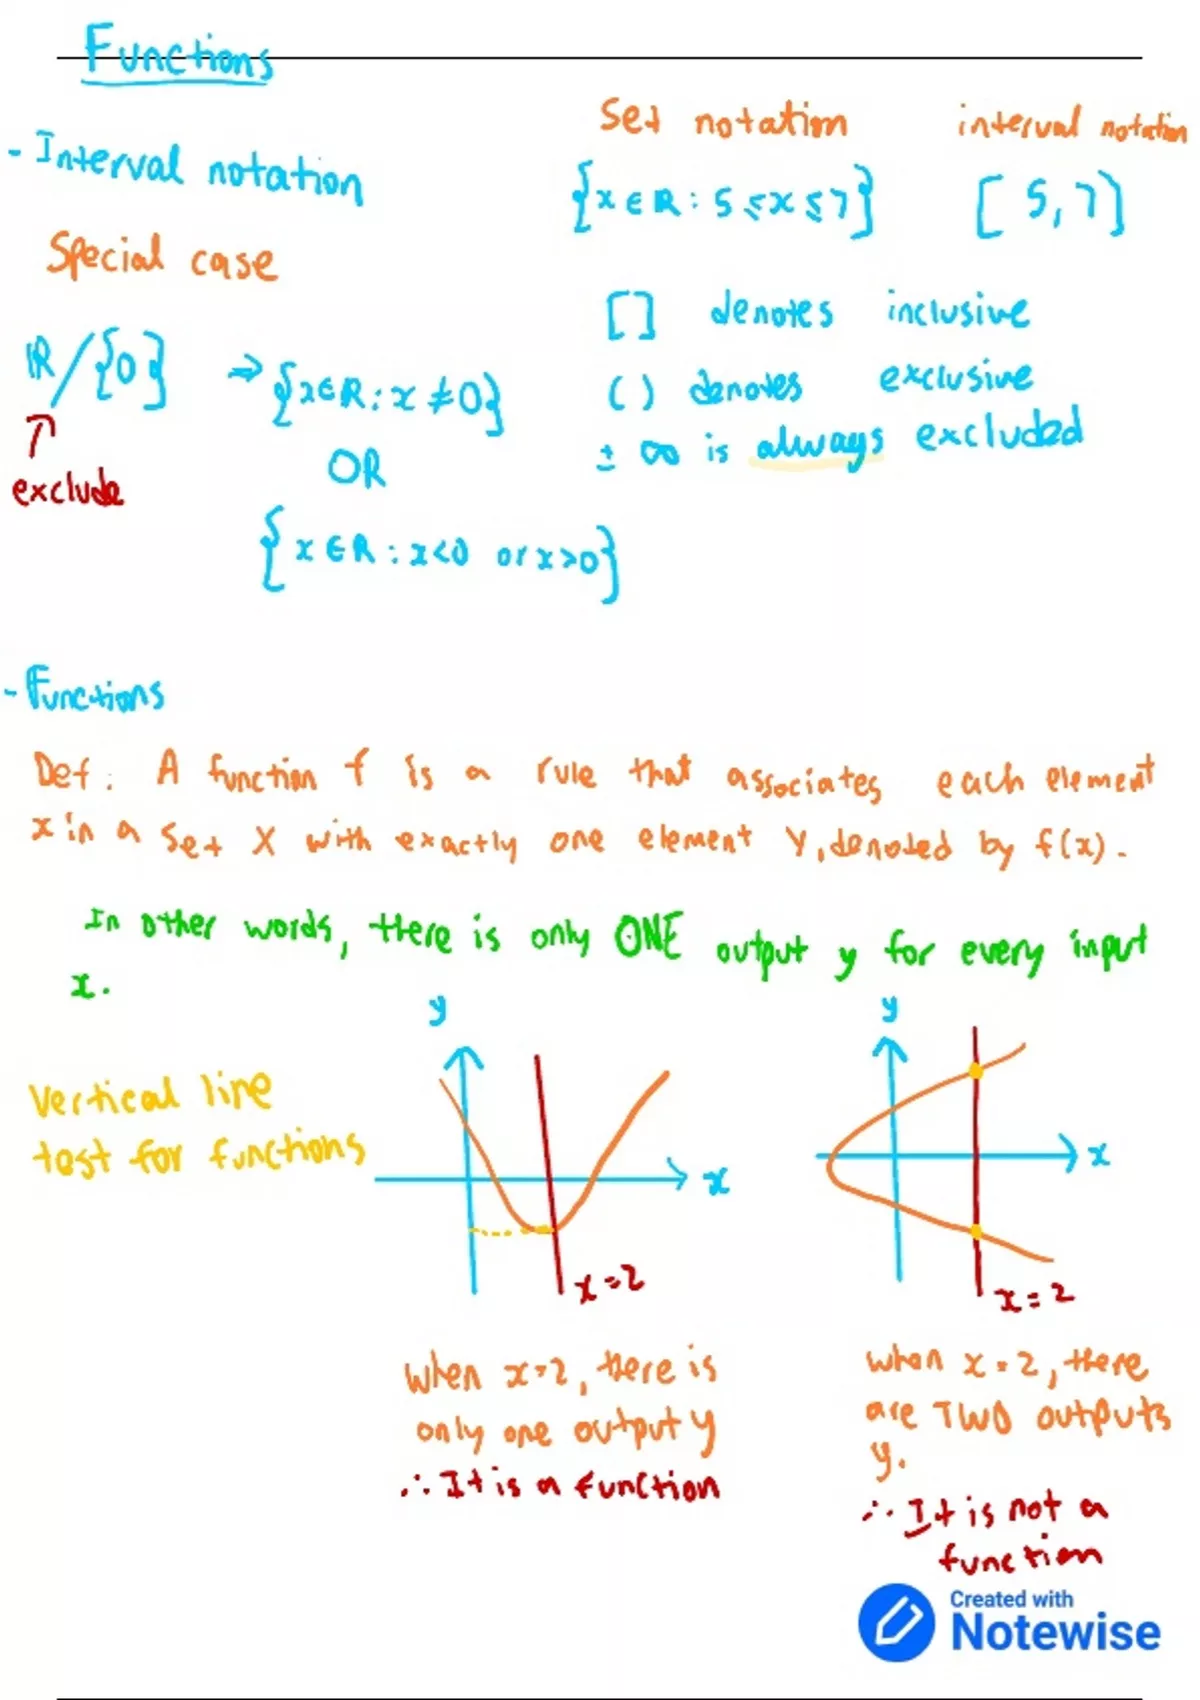 Functions
- Interval notation
Set notation interval notation
{x ∈ ℝ : 5 ≤ x ≤ 7} [5, 7]
Special case
[] denotes inclusive
ℝ/{0} ⇒ {x ∈ ℝ : x ≠ 0}
() denotes exclusive
± ∞ is always excluded
↑
exclude
OR
{x ∈ ℝ : x < 0 or x > 0}
- Functions
Def: A function f is a rule that associates each element
x in a set X with exactly one element Y, denoted by f(x).
In other words, there is only ONE output y for every input
x.
Vertical line
test for functions
y
x
x = 2
when x = 2, there is
only one output y
∴ It is a function
y
x
x = 2
when x = 2, there
are TWO outputs
y.
∴ It is not a
function
Created with
Notewise